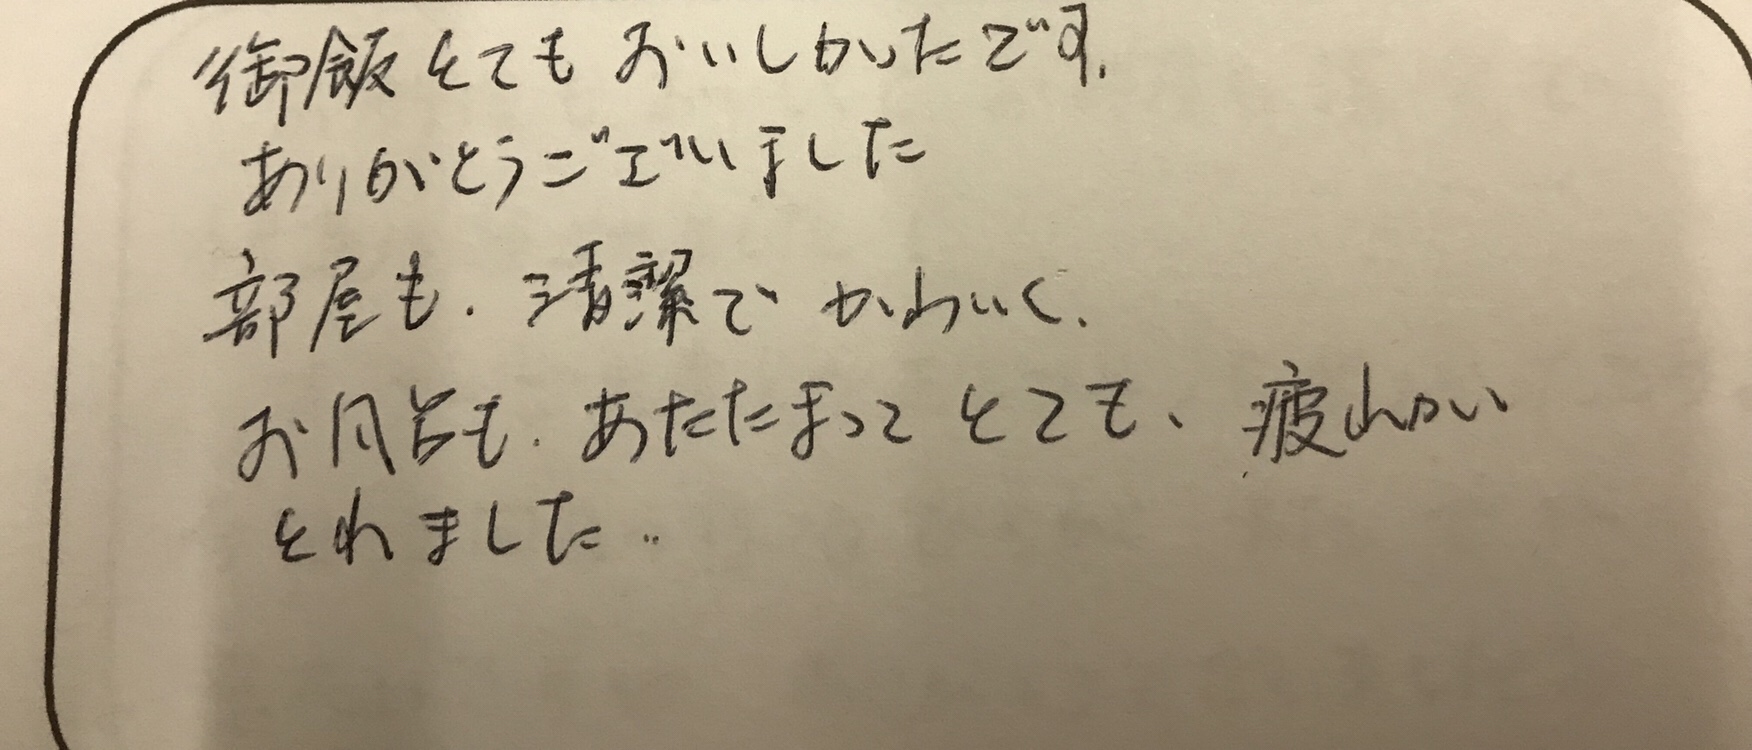 御飯とてもおいしかったです.
ありがとうございました
部屋も.清潔でかわいく.
お風呂も.あたたまってとても、疲れが
とれました..